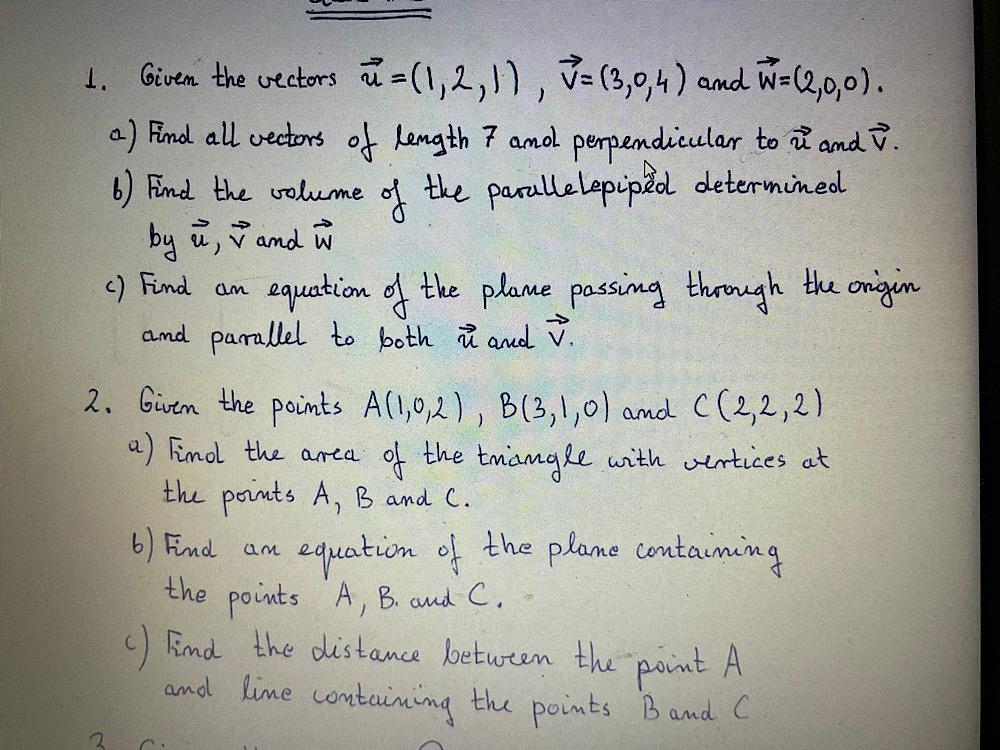 1. Given the vectors u⃗ = (1,2,1), v⃗ = (3,0,4) and w⃗ = (2,0,0).
a) Find all vectors of length 7 and perpendicular to u⃗ and v⃗.
b) Find the volume of the parallelepiped determined
by u⃗, v⃗ and w⃗
c) Find an equation of the plane passing through the origin
and parallel to both u⃗ and v⃗.
2. Given the points A(1,0,2), B(3,1,0) and C(2,2,2)
a) Find the area of the triangle with vertices at
the points A, B and C.
b) Find an equation of the plane containing
the points A, B. and C.
c) Find the distance between the point A
and line containing the points B and C